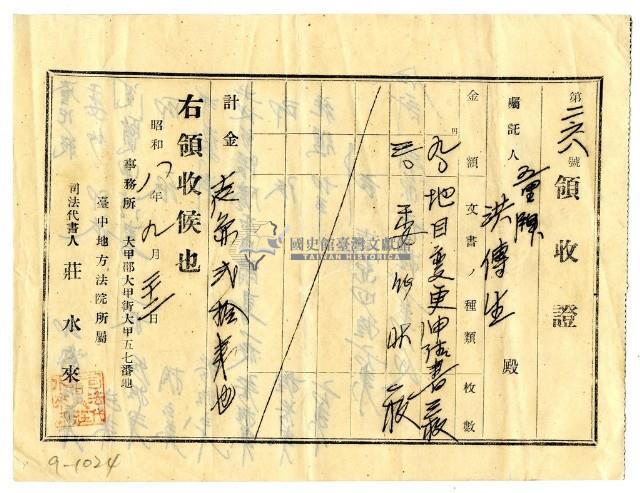 第二六八號
領收證
囑託人 五里牌 洪傳生 殿
金額 文書ノ種類 枚數
円
九〇 地目變更申請書 二，
三〇 委任狀 一，
計金 壱円弐拾銭也
右領收候也
昭和八年九月 日
事務所 大甲郡大甲街大甲五七番地
臺中地方法院所屬
司法代書人 莊水來
國史館臺灣文獻館
TAIWAN HISTORICA
9-1024